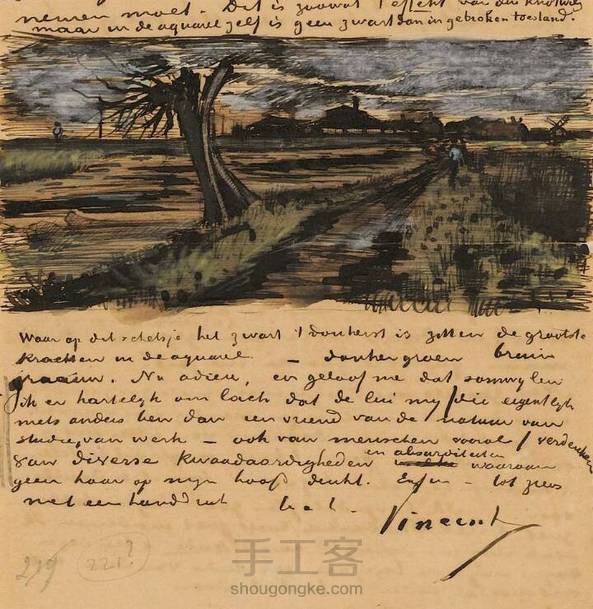 nemen moet. Dit is zoowat 't effekt van den knotwilg
maar in de aquarel zelf is geen zwart dan in gebroken toestand.
Waar op dit schetsje het zwart 't donkerst is zitten de grootste
krachten in de aquarel – donkergroen bruin
graauw. Nu adieu, en geloof me dat somwijlen
ik er hartelijk om lach dat de lui my (die eigentlyk
niets anders ben dan een vriend van de natuur van
studie, van werk – ook van menschen vooral) verdenken
van diverse kwaadaardigheden en absurditeiten waaraan
geen haar op myn hoofd denkt. Enfin – tot ziens
met een handdruk
Vincent
219
221?
手工客
shougongke.com